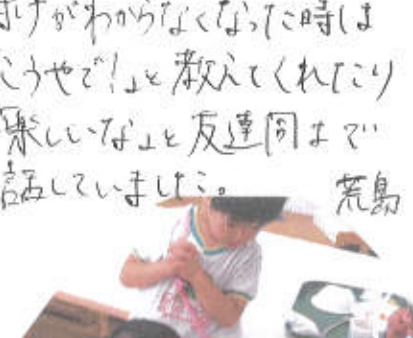 がわからなくなった時は
こうやで!」と教えてくれたり
「楽しいな」と友達同士で
話していました。 荒島